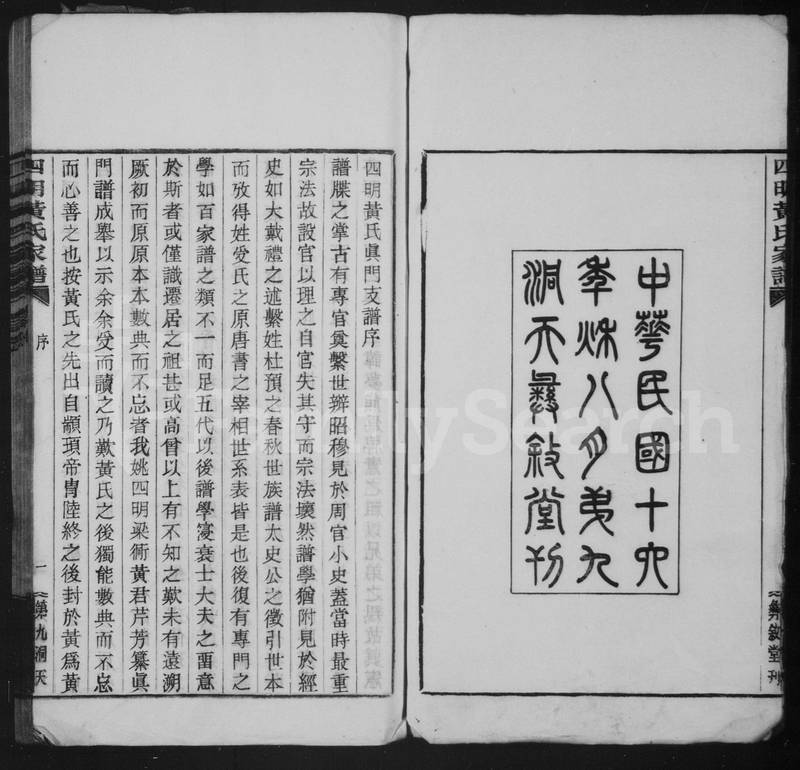 四明黃氏家譜
中華民國十六
年秋八月第九
洞天彝敘堂刊
彝敘堂刊
四明黃氏眞門支譜序
譜牒之掌古有專官奠繫世辨昭穆見於周官小史蓋當時最重
宗法故設官以理之自官失其守而宗法壞然譜學猶附見於經
史如大戴禮之述繫姓杜預之春秋世族譜太史公之徵引世本
而攷得姓受氏之原唐書之宰相世系表皆是也後復有專門之
學如百家譜之類不一而足五代以後譜學寖衰士大夫之畱意
於斯者或僅識遷居之祖甚或高曾以上有不知之歎未有遠溯
厥初而原原本本數典而不忘者我姚四明梁衖黃君芹芳纂眞
門譜成舉以示余余受而讀之乃歎黃氏之後獨能數典而不忘
而心善之也按黃氏之先出自顓頊帝冑陸終之後封於黃爲黃
四明黃氏家譜
序
一
第九洞天
FamilySearch